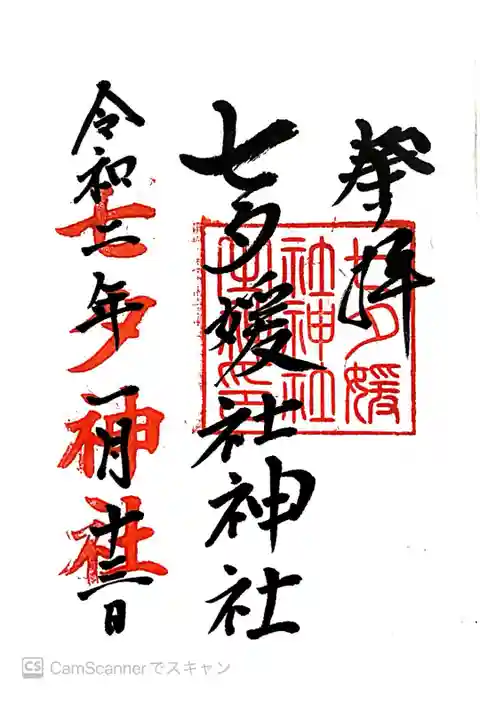 奉拝
七夕媛
社神社
七夕媛社神社
令和二年一月廿二日
七夕神社
CS CamScannerでスキャン